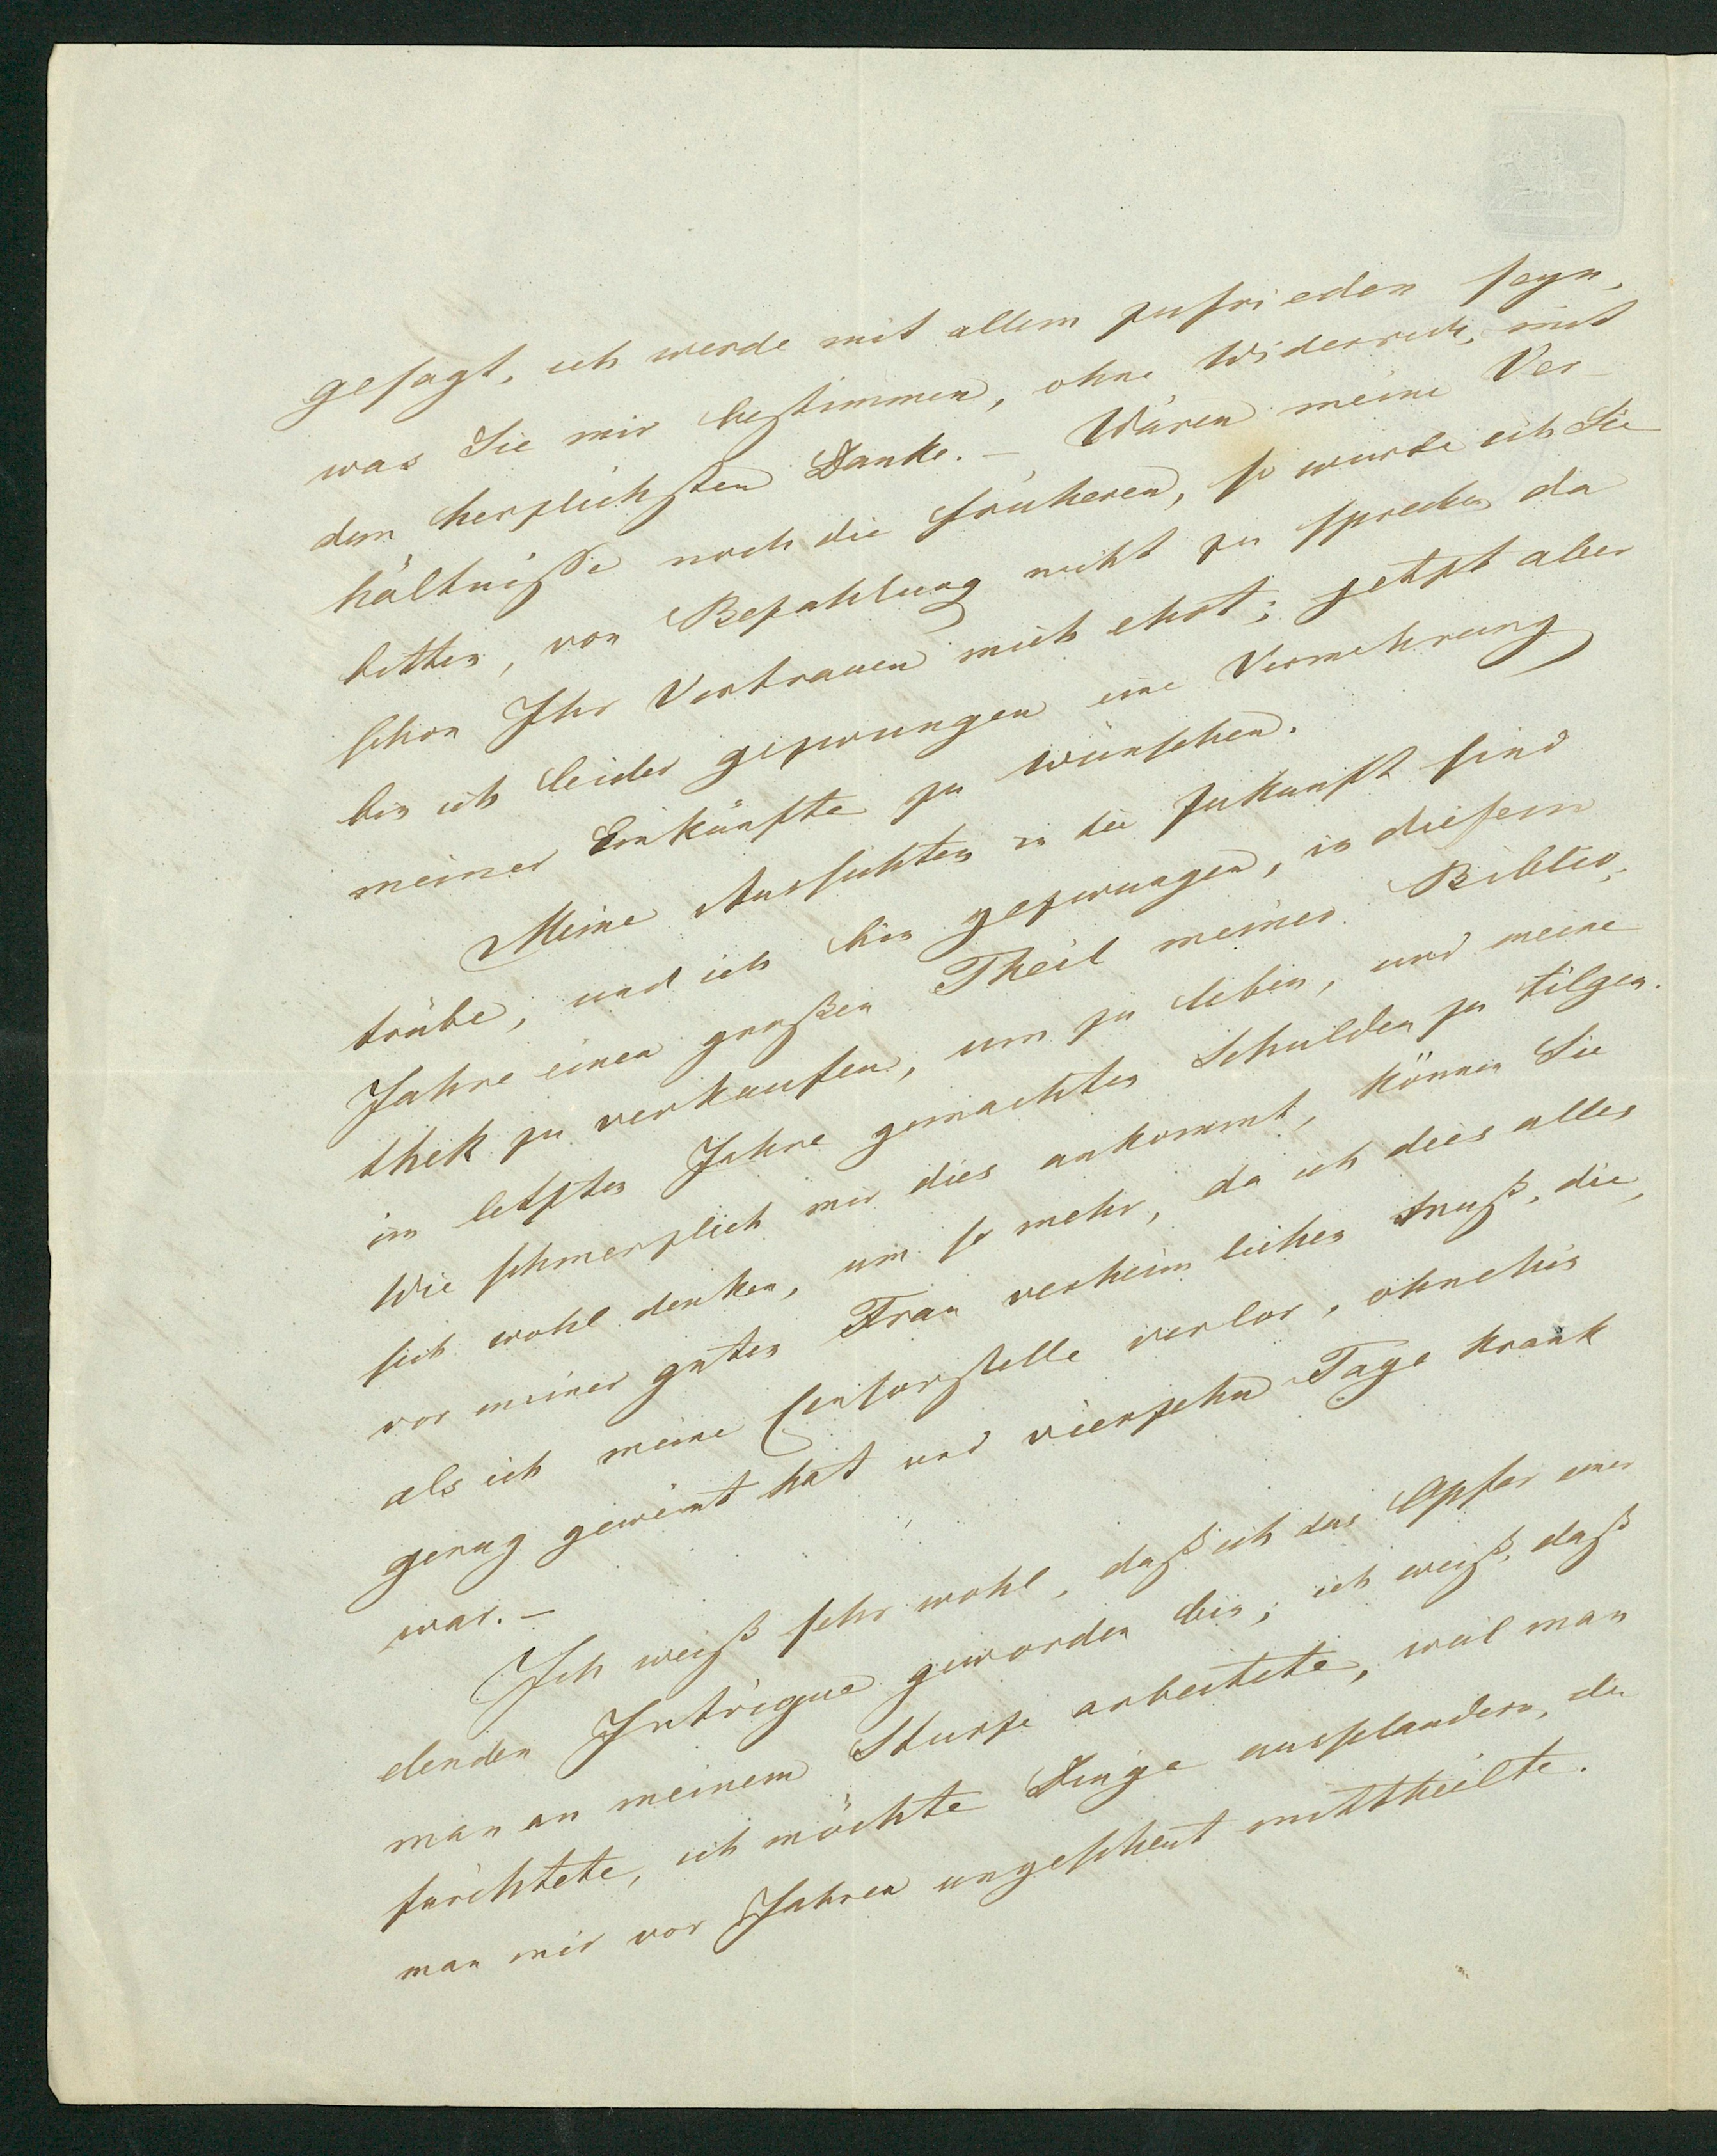 gesagt, ich werde mit allem zufrieden seyn,
was Sie mir bestimmen, ohne Widerrede, mit
dem herzlichsten Danke. – Wären meine Ver-
hältniße noch die früheren, so würde ich Sie
bitten, von Bezahlung nicht zu sprechen da
schon Ihr Vertrauen mich ehrt; jetzt aber
bin ich leider gezwungen eine Vermehrung
meiner Einkünfte zu wünschen.
Meine Aussichten in die Zukunft sind
trübe, und ich bin gezwungen, in diesem
Jahre einen großen Theil meiner Biblio-
thek zu verkaufen, um zu leben, und meine
im letzten Jahre gemachten Schulden zu tilgen.
Wie schmerzlich mir dies ankommt, können Sie
sich wohl denken, um so mehr, da ich dies alles
vor meiner guten Frau verheimlichen muß, die,
als ich meine Censorstelle verlor, ohnehin
genug geweint hat und vierzehn Tage krank
war. –
Ich weiß sehr wohl, daß ich das Opfer einer
elenden Intrigue geworden bin; ich weiß, daß
man an meinem Sturze arbeitete, weil man
fürchtete, ich möchte Dinge ausplaudern, die
man mir vor Jahren ungescheut mittheilte.